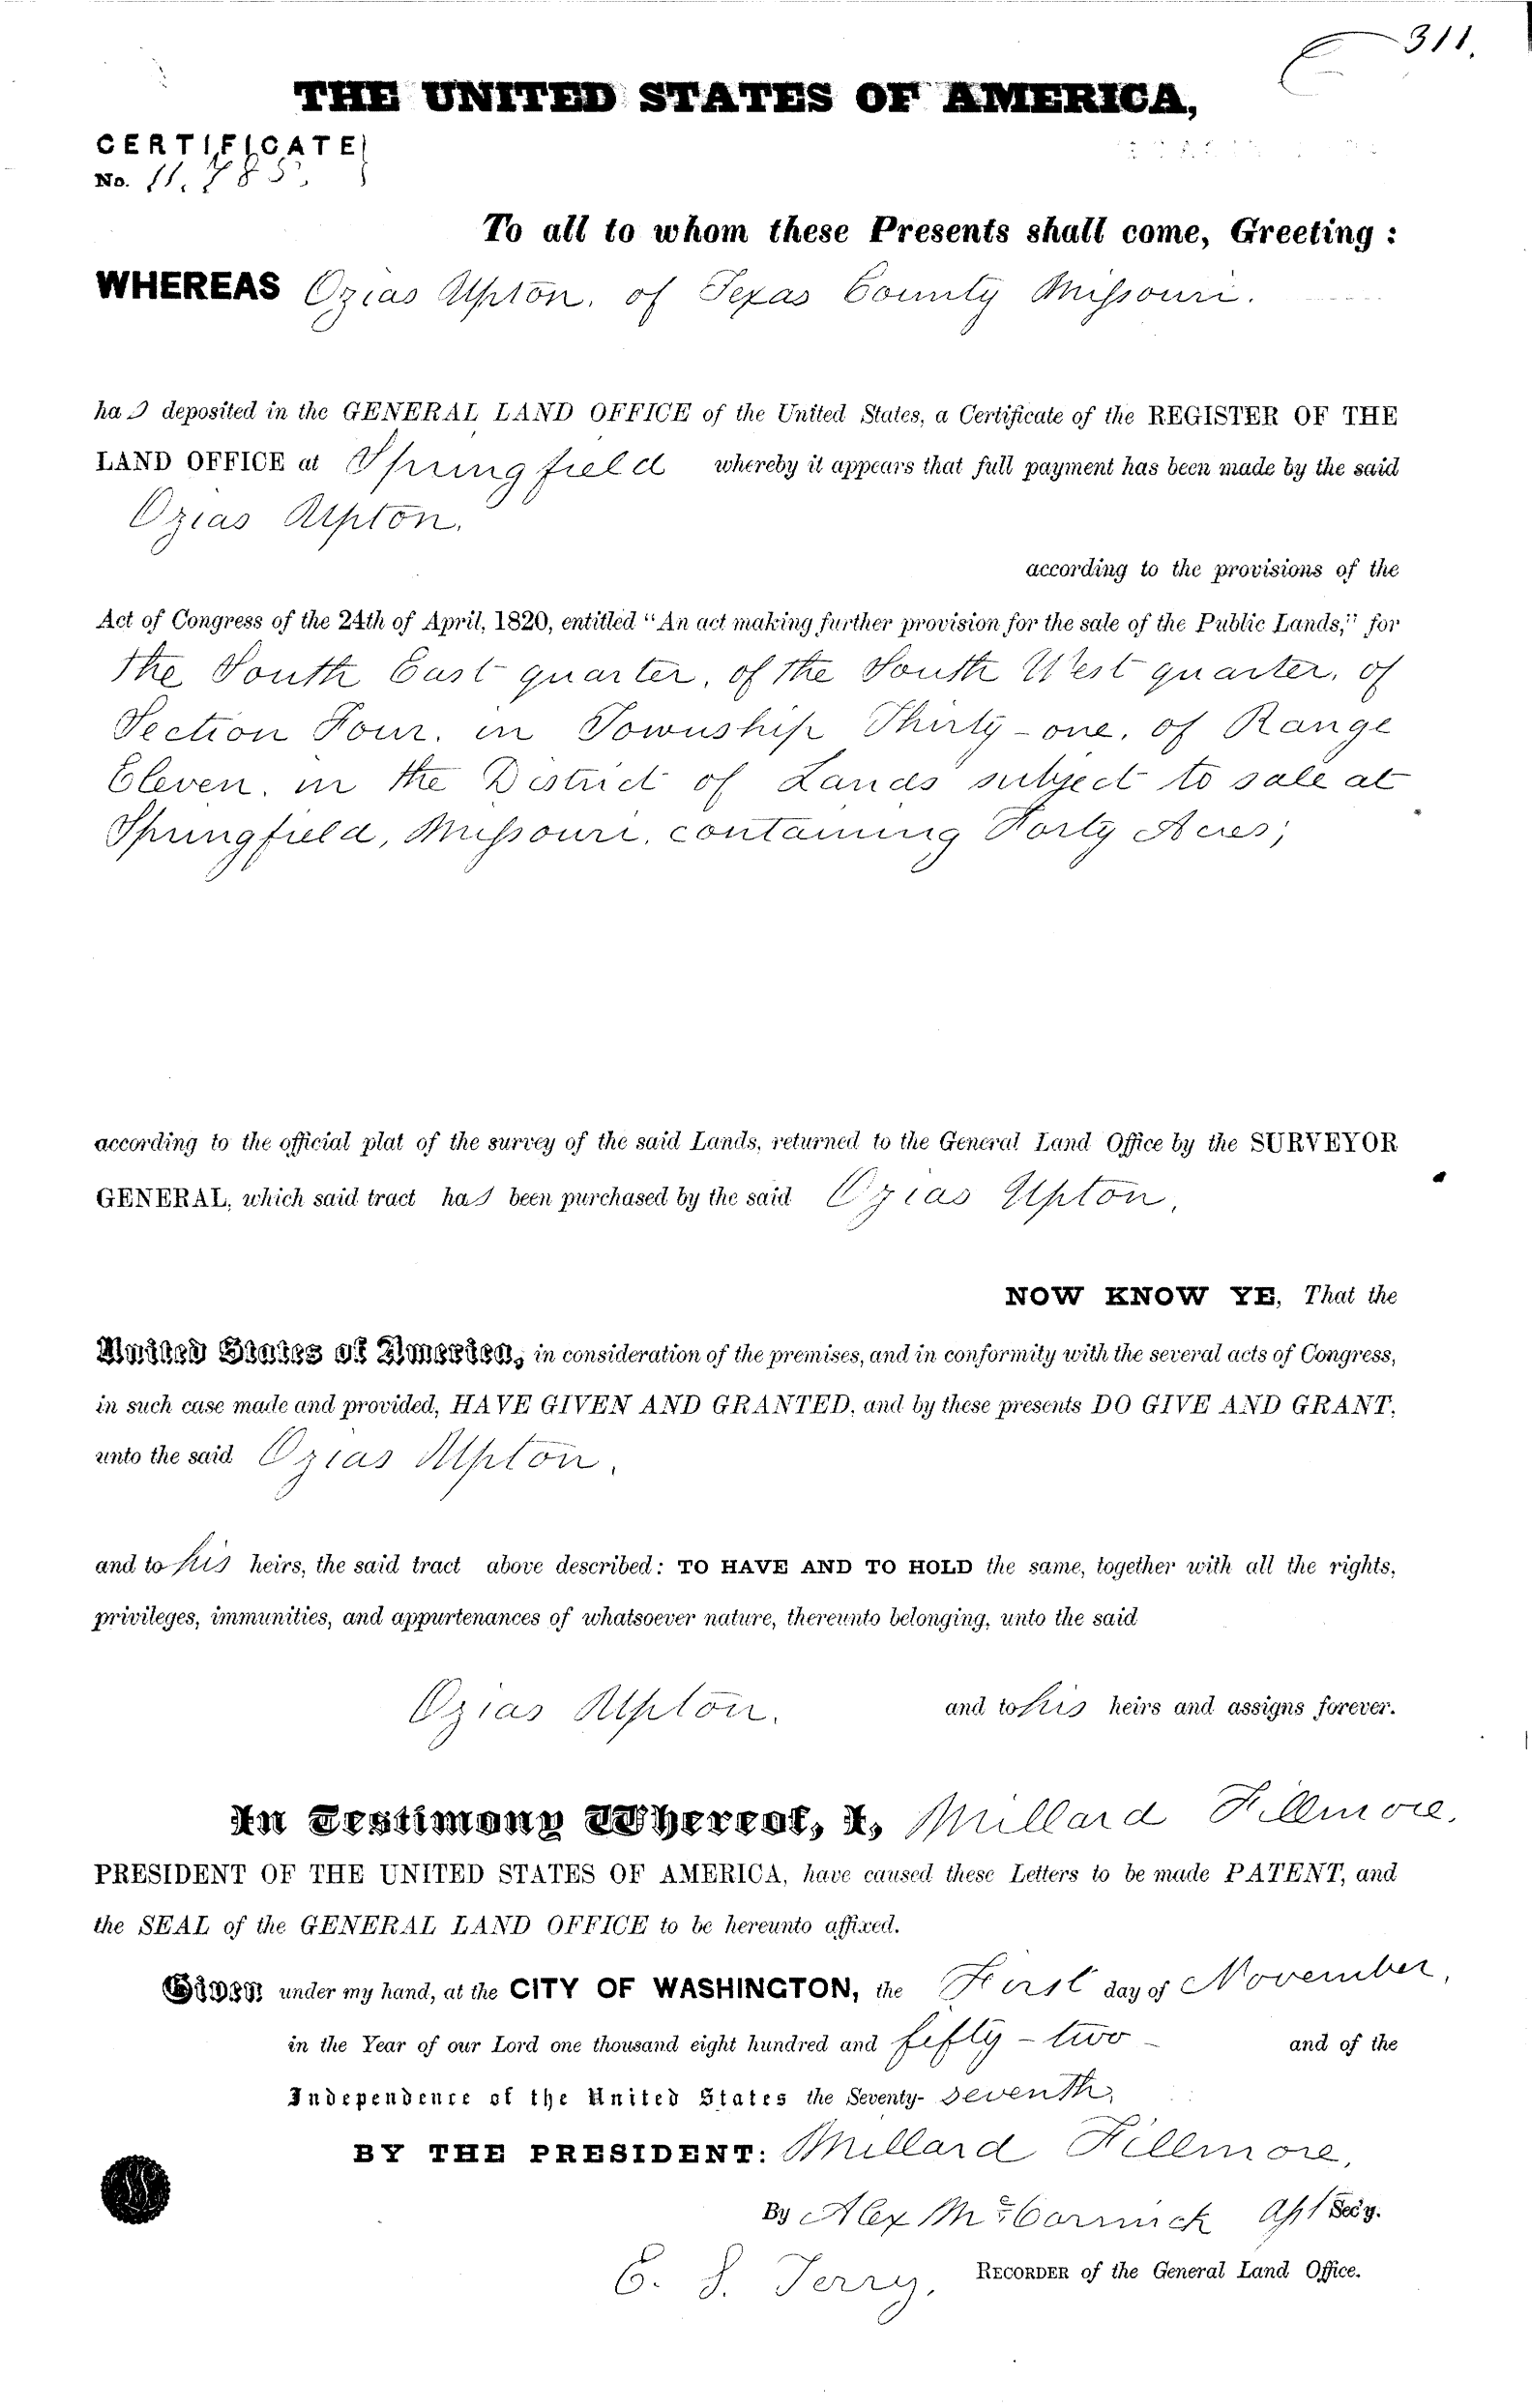 311.
THE UNITED STATES OF AMERICA,
CERTIFICATE
No. 11.785.
To all to whom these Presents shall come, Greeting :
WHEREAS Ozias Upton, of Texas County Missouri.
has deposited in the GENERAL LAND OFFICE of the United States, a Certificate of the REGISTER OF THE
LAND OFFICE at Springfield whereby it appears that full payment has been made by the said
Ozias Upton.
according to the provisions of the
Act of Congress of the 24th of April, 1820, entitled "An act making further provision for the sale of the Public Lands," for
the South East quarter, of the South West quarter, of
Section Four, in Township Thirty-one, of Range
Eleven, in the District of Lands subject to sale at
Springfield, Missouri, containing Forty Acres;
according to the official plat of the survey of the said Lands, returned to the General Land Office by the SURVEYOR
GENERAL, which said tract has been purchased by the said Ozias Upton,
NOW KNOW YE, That the
United States of America, in consideration of the premises, and in conformity with the several acts of Congress,
in such case made and provided, HAVE GIVEN AND GRANTED, and by these presents DO GIVE AND GRANT,
unto the said Ozias Upton,
and to his heirs, the said tract above described: TO HAVE AND TO HOLD the same, together with all the rights,
privileges, immunities, and appurtenances of whatsoever nature, thereunto belonging, unto the said
Ozias Upton, and to his heirs and assigns forever.
In Testimony Whereof, I, Millard Fillmore,
PRESIDENT OF THE UNITED STATES OF AMERICA, have caused these Letters to be made PATENT, and
the SEAL of the GENERAL LAND OFFICE to be hereunto affixed.
Given under my hand, at the CITY OF WASHINGTON, the First day of November,
in the Year of our Lord one thousand eight hundred and fifty-two and of the
Independence of the United States the Seventy-seventh,
BY THE PRESIDENT: Millard Fillmore,
By Alex McCormick Ast Sec'y.
E. S. Terry, RECORDER of the General Land Office.